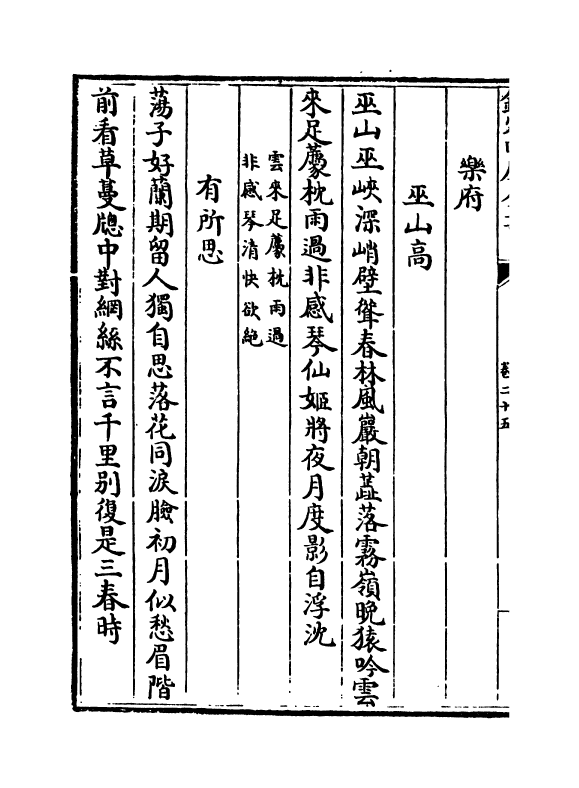 卷二十五
樂府
巫山高
巫山巫峽深峭壁聳春林風巖朝蘂落霧嶺晚猿吟雲
來足薦枕雨過非感琴仙姬將夜月度影自浮沈
雲來足薦枕雨過
非感琴清快欲絶
有所思
蕩子好蘭期留人獨自思落花同淚臉初月似愁眉階
前看草蔓牕中對網絲不言千里别復是三春時